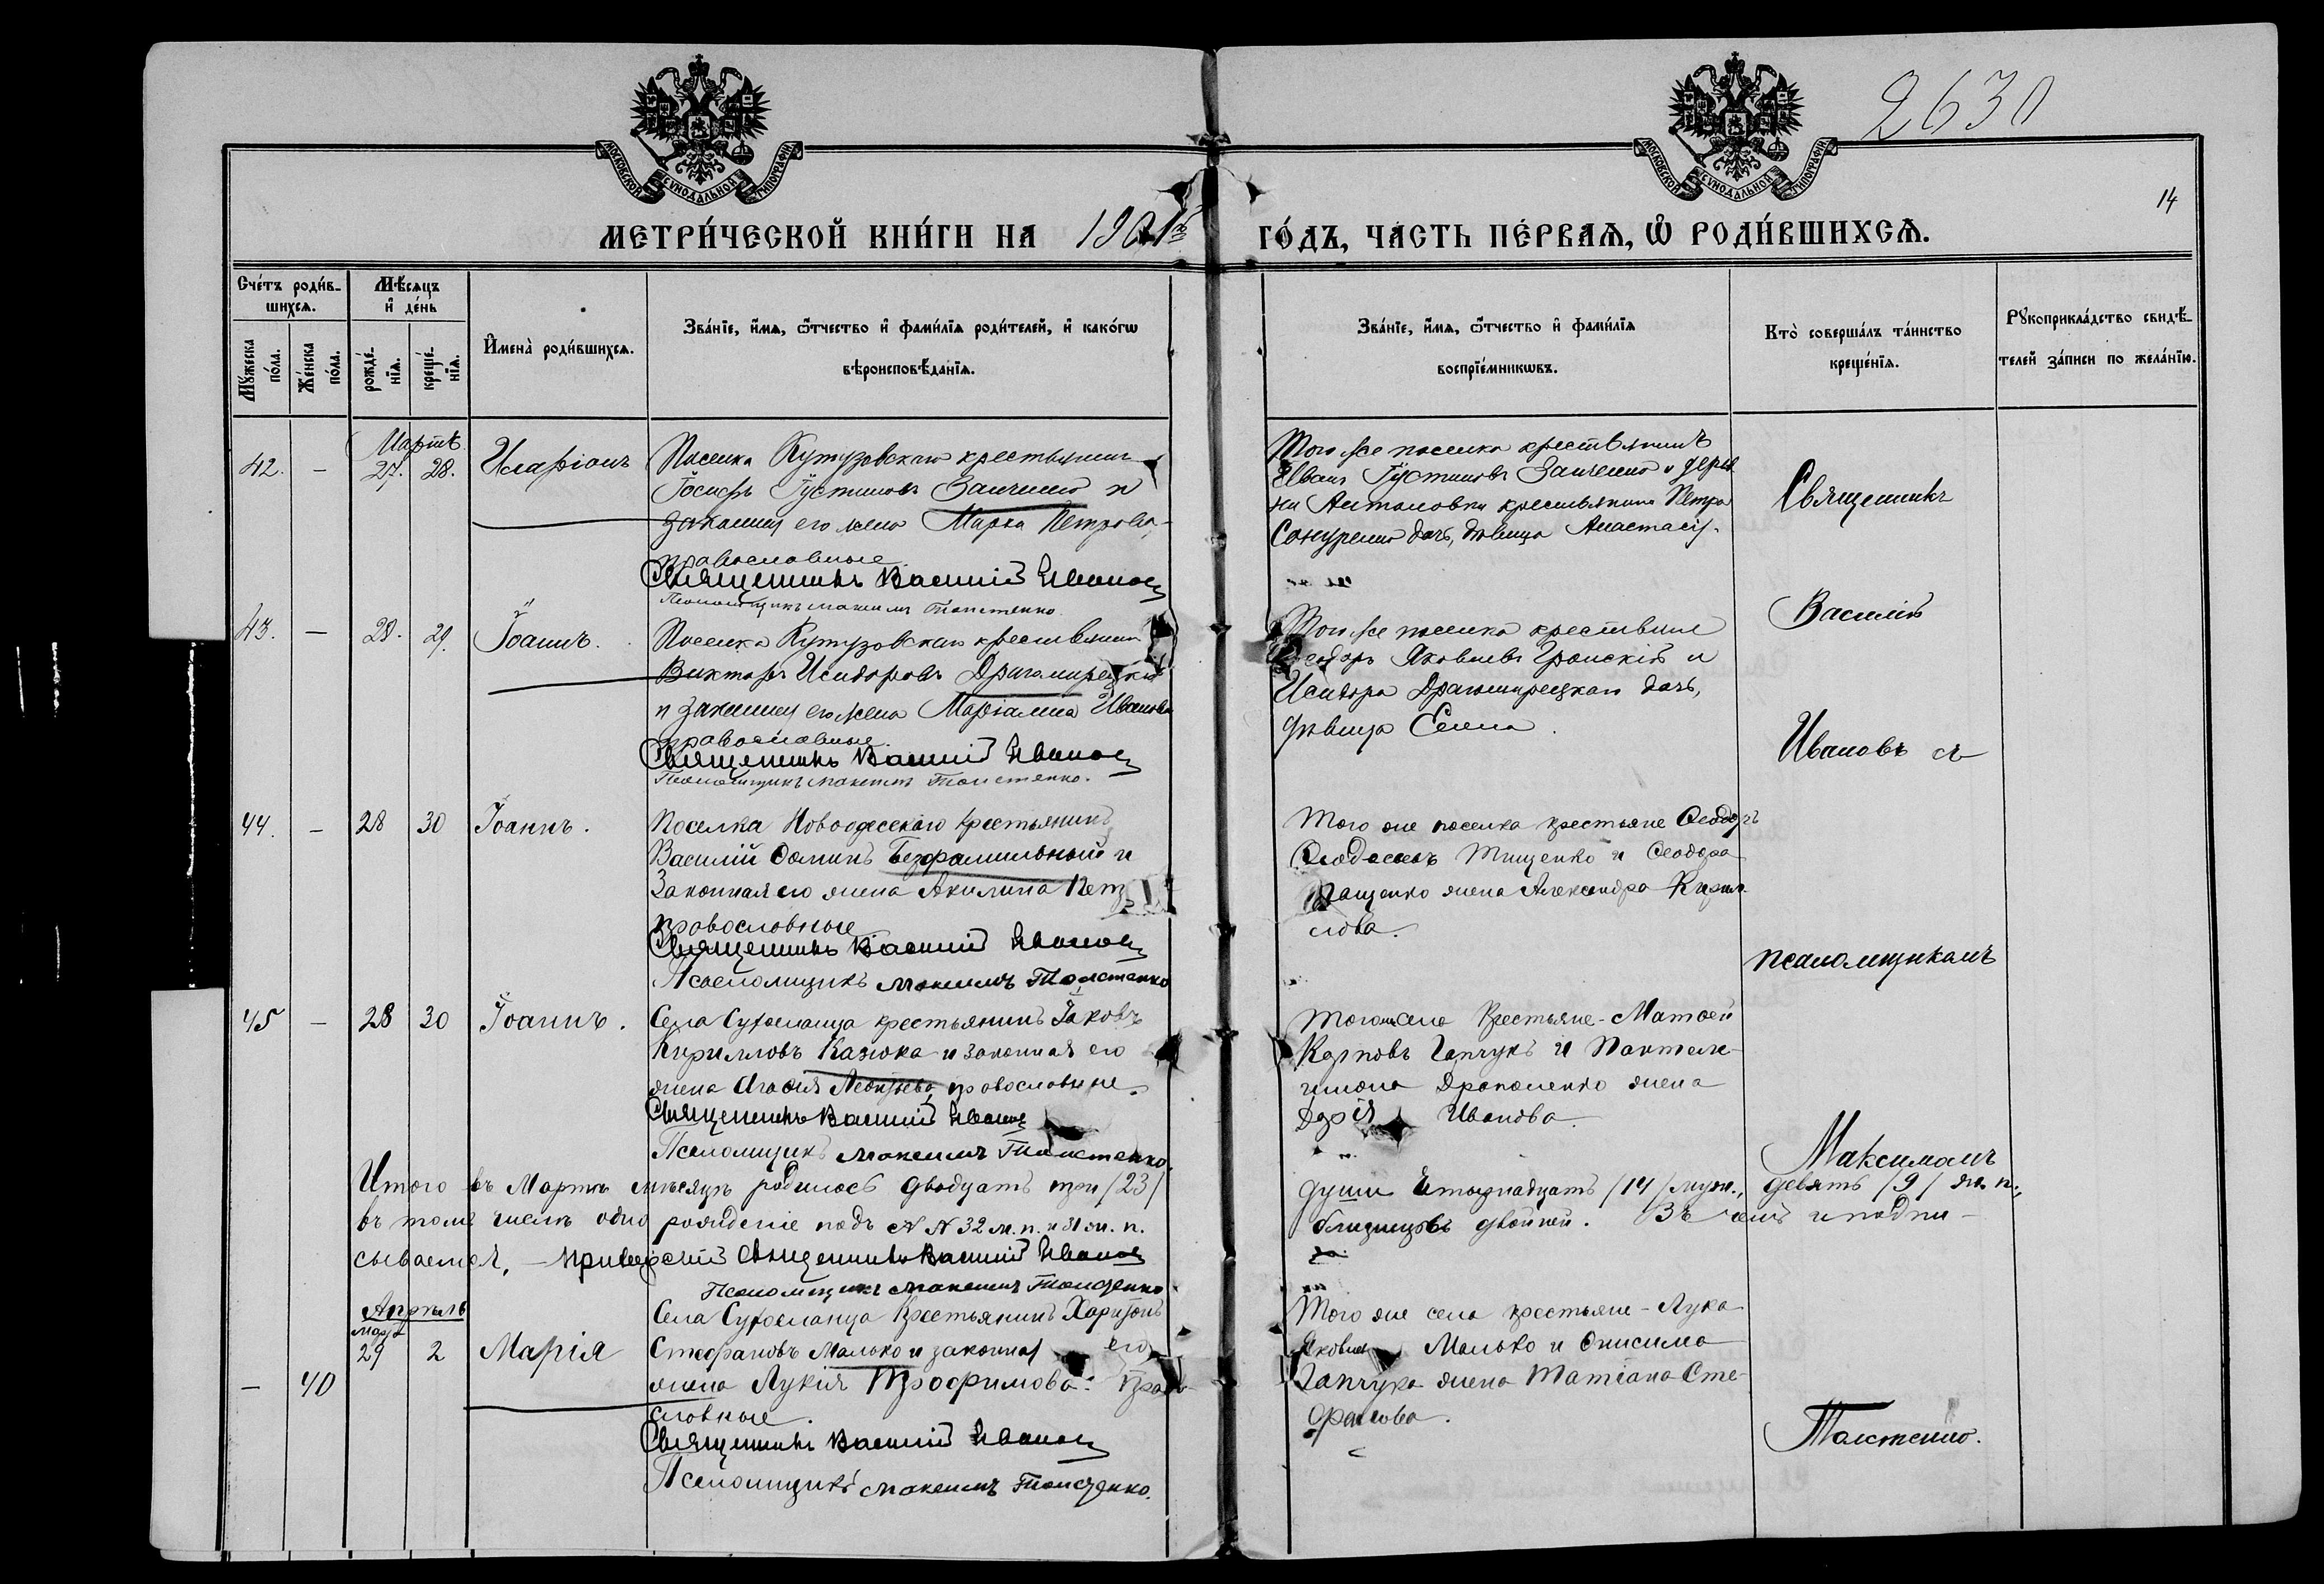 МОСКОВСКОЙ СѴНОДАЛЬНОЙ ТИПОГРАФІИ
МОСКОВСКОЙ СѴНОДАЛЬНОЙ ТИПОГРАФІИ
2630
14
МЕТРИ́ЧЕСКОЙ КНИ́ГИ НА 1901й ГО́ДЪ, ЧА́СТЬ ПЕ́РВАѦ, Ѡ҆ РОДИ́ВШИХСѦ.
Сче́тъ роди́в-
шихсѧ.
Мꙋ́жеска по́ла.
Же́нска по́ла.
Мѣ́сѧцъ
и҆ де́нь
рожде́-
нїѧ.
креще́-
нїѧ.
И҆мена̀ роди́вшихсѧ.
Зва́нїе, и҆́мѧ, ѻ҆́тчество и҆ фами́лїѧ роди́телей, и҆ како́гѡ
вѣроисповѣ́данїѧ.
Зва́нїе, и҆́мѧ, ѻ҆́тчество и҆ фами́лїѧ
воспрїе́мникѡвъ.
Кто̀ соверша́лъ та́инство
креще́нїѧ.
Рꙋкоприкла́дство свидѣ́-
телей за́писи по жела́нїю.
Мартъ
42. — 27. 28. Иларіонъ
Поселка Кутузовскаго крестьянинъ
Іосифъ Іустиновъ и
законная его жена Марѳа Петрова,
православные.
Священникъ Василій Ивановъ
Псаломщикъ Максимъ Толстенко.
Того же поселка крестьянинъ
Иванъ Іустиновъ и дерев
ни Антоновки крестьянина Петра
дочь, дѣвица Анастасія.
43. — 28. 29. Іоаннъ.
Поселка Кутузовскаго крестьянинъ
Викторъ Исидоровъ Драгомирецкій
и законная его жена Маріамна Иванова
православные.
Священникъ Василій Ивановъ
Псаломщикъ Максимъ Толстенко.
Того же поселка крестьяне
Ѳеодоръ Яковлевъ Гронскій и
Исидора Драгомирецкаго дочь,
дѣвица Елена.
44. — 28 30 Іоаннъ.
Поселка Новоодесскаго крестьянинъ
Василій Ѳоминъ Безфамильный и
Законная его жена Акилина Петр
православные
Священникъ Василій Ивановъ
Псаломщикъ Максимъ Толстенко
Того же поселка крестьяне Ѳеодоръ
Тищенко и Ѳеодора
жена Александра Кирил
лова.
45 — 28 30 Іоаннъ.
Села Суховланца крестьянинъ Іаковъ
Кирилловъ Казюка и законная его
жена Агаѳія Леонтьева, православные.
Священникъ Василій Ивановъ
Псаломщикъ Максимъ Толстенко.
Того же села Крестьяне - Матѳей
Карповъ Гапчукъ и Пантеле-
имона жена
Дарія Иванова.
Итого въ Мартѣ мѣсяцѣ родилось двадцать три /23/ души четырнадцать /14/ муж., девять /9/ ж. п.,
въ томъ числѣ одно рожденіе подъ № № 32 м. п. и 31 ж. п. близнецовъ двойней. Въ семъ и подпи-
сываемся, — Приходскій Священникъ Василій Ивановъ
Псаломщикъ Максимъ Толстенко
Апрѣль
Март
29 2 Марія
— 40
Села Суховланца Крестьянинъ Харитонъ
Стефановъ Малько и законная его
жена Лукія Трофимова. Право-
славные.
Священникъ Василій Ивановъ
Псаломщикъ Максимъ Толстенко.
Того же села крестьяне - Лука
Яковлевъ Малько и Онисима
Гапчука жена Татіана Сте-
фанова.
Священникъ
Василій
Ивановъ съ
псаломщикомъ
Максимомъ
Толстенко.